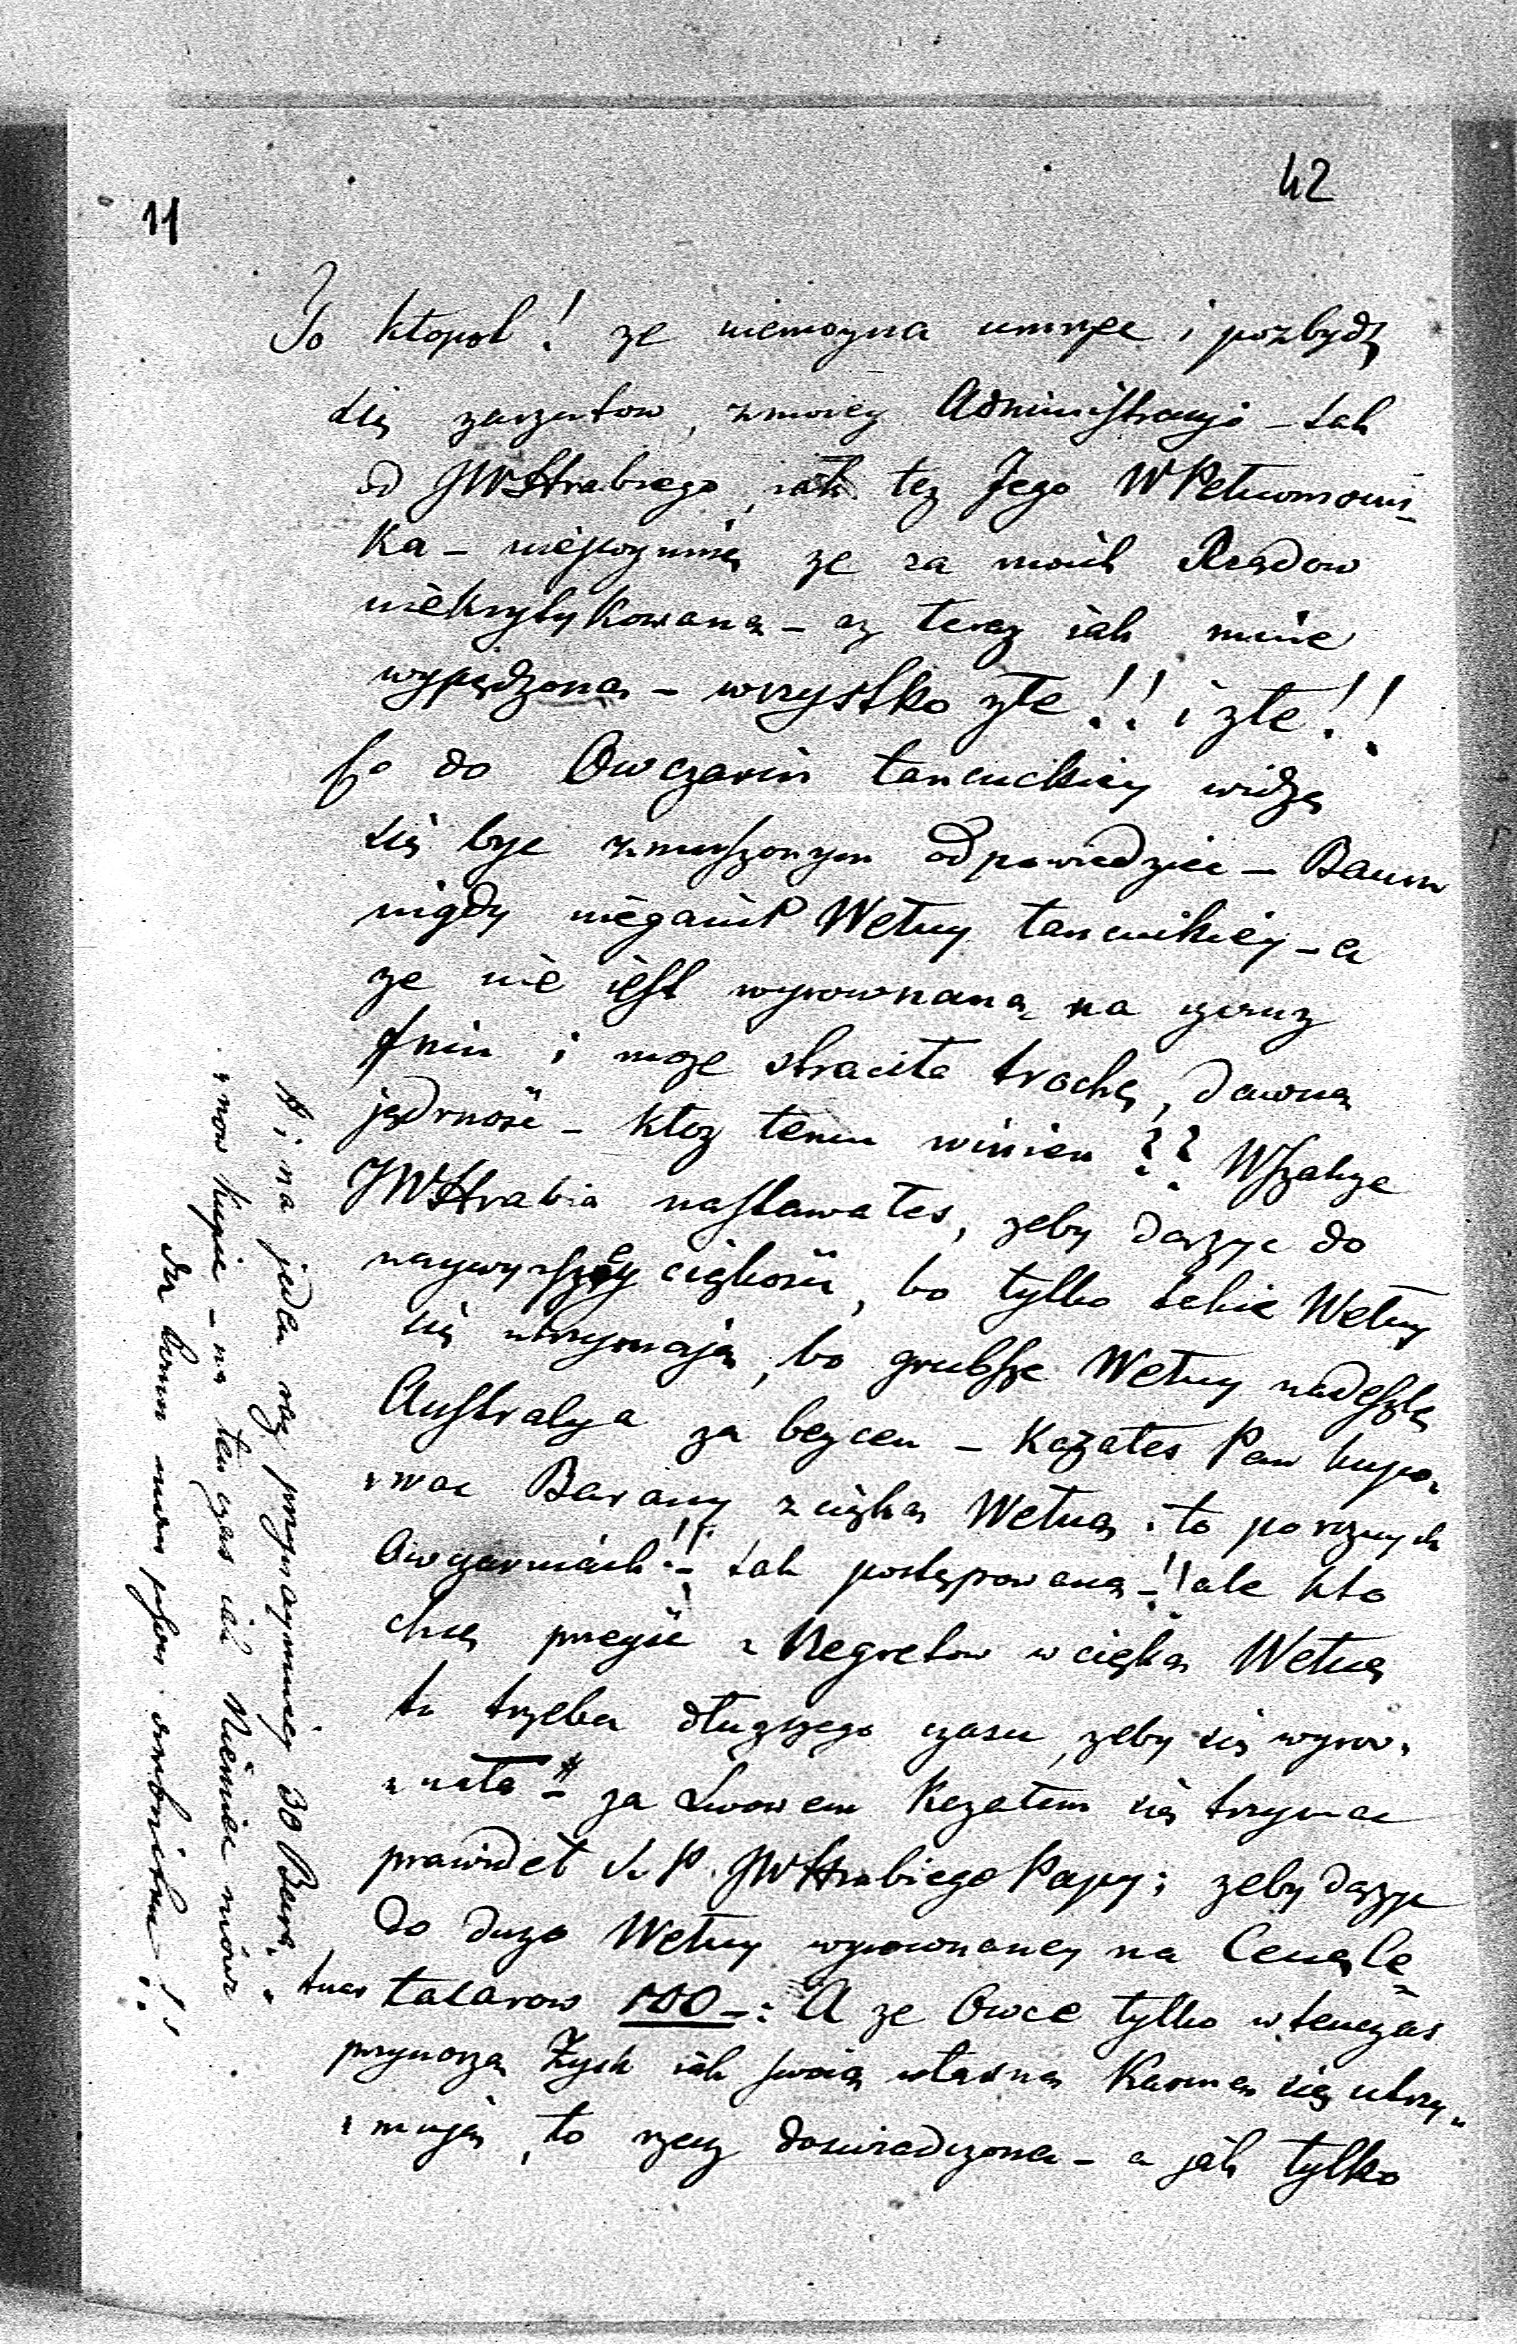 42
11
To kłopot! ze niemozna umrzec i pozbydź
się zarzutow, zmoiey Administracyi – tak
od JWHrabiego, iak tez Jego WPełnomocni-
ka – ze za moich Rządow
niekrytykowano – az teraz iak mnie
wypędzono – wszystko złe!! i złe!!
Co do Owczarni łancuckiey widzę
się byc zmuszonym odpowiedziec – Baum
nigdy nieganił Wełny łancuckiey – a
ze nie iest wyrownaną na
i moze straciła trochę, dawną
jędrność – ktoz temu winien?? Wszakze
JWHrabia nastawałes, zeby dązyc do
naywyzszey cięzkości, bo tylko takie Wełny
się utrzymają, bo grubsze Wełny nadeszlą
Australya za bezcen – Kazałes Pan kupo-
wac Barany z cięzką Wełną, to po roznych
Owczarniach!! tak postępowano –!! ale kto
chce przeyść z Negretow w cięzką Wełnę
to trzeba dłuzszego czasu, zeby się wyrow-
nała – # za Lwowem Kazałem się trzymac
prawideł S. P. JWHrabiego Papy; zeby dązyc
do duzo Wełny wyrownaney na Cenę
talarow 100 –: A ze Owce tylko wtenczas
przynoszą Zysk iak swoią własną Karmą się utrzy-
mują, to rzecz doswiadczona – a jak tylko
# i na jeden raz przynaymniey 30 Bara-
now kupic – na ten czas iak Niemiec mówi